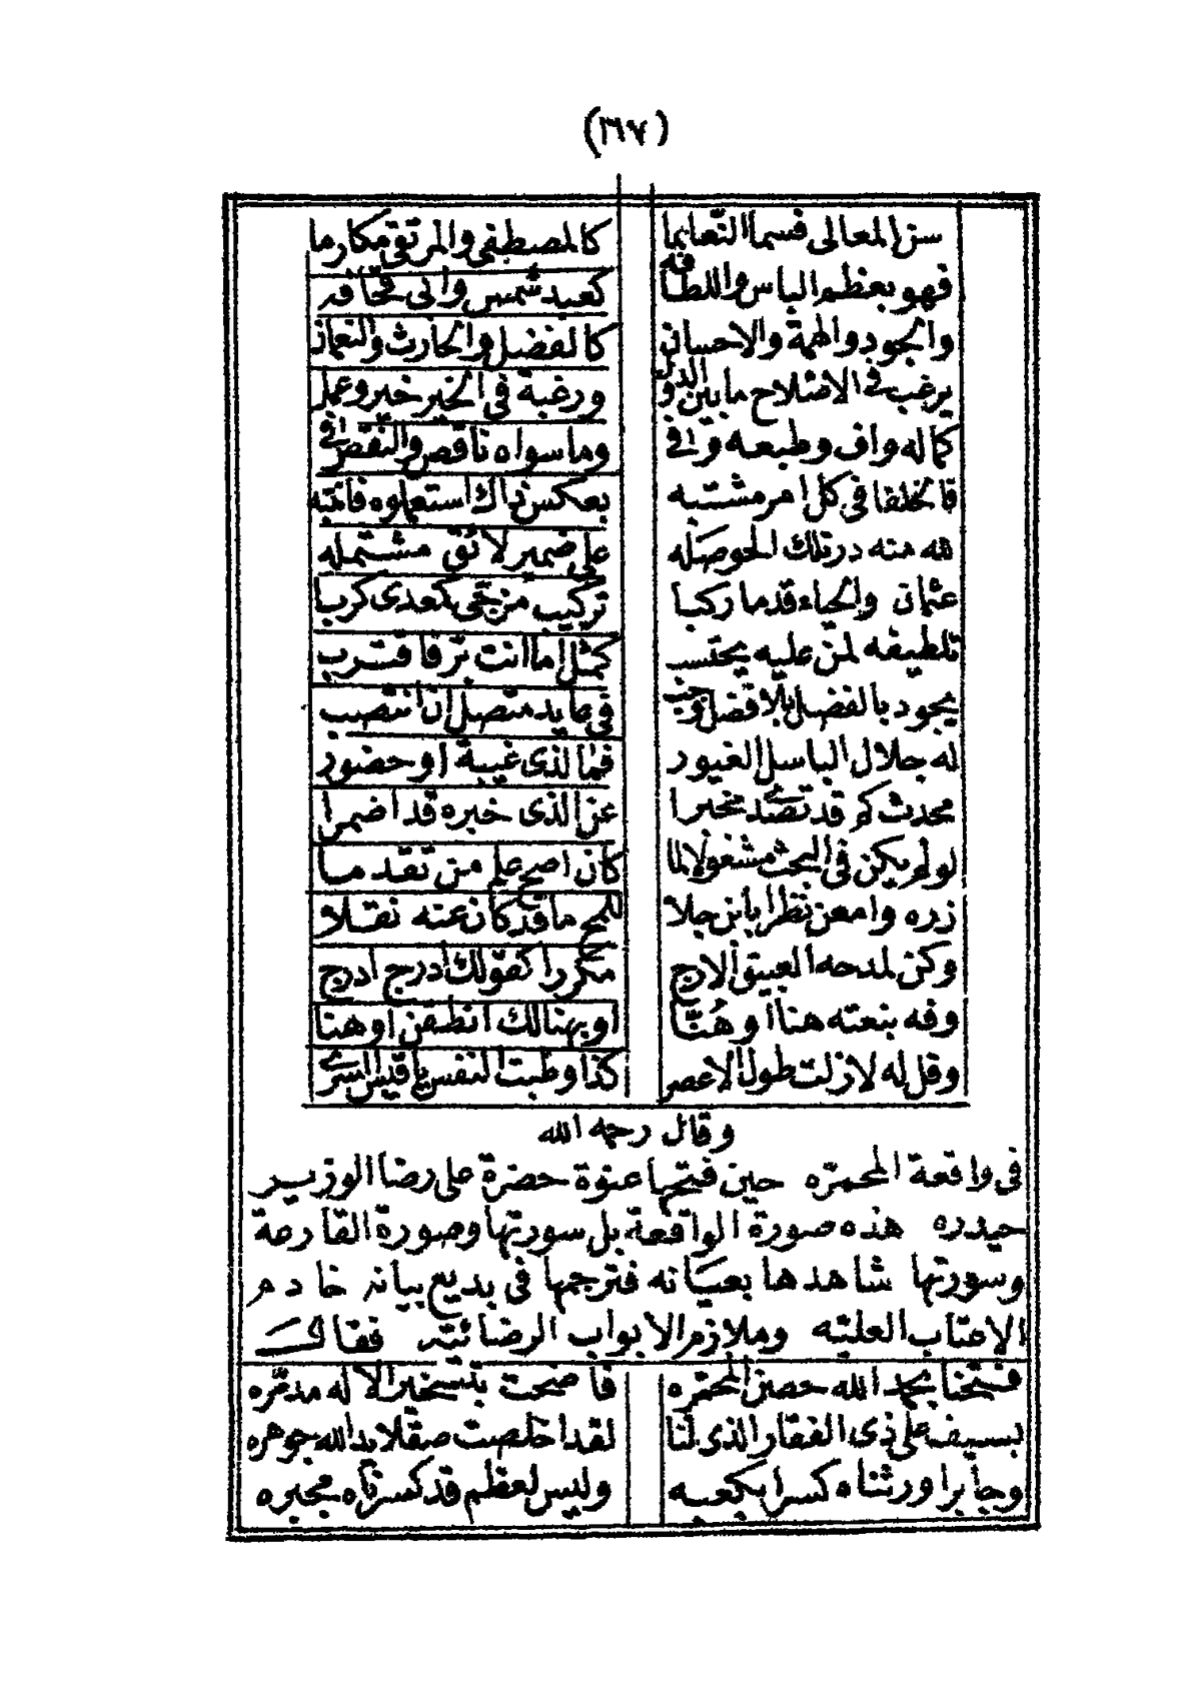 (١٦٧)
سن المعالى فسما النعايما كالمصطفى والمرتقى مكارما
فهو بعظم الباس واللطافه كعبد شمس وابى قحافه
والجود والهمة والاحسان كالفضل والحارث والنعمان
يرغب فى الاصلاح ما بين الدول ورغبة فى الخير خير وعمل
كماله واف وطبعه وفى وما سواه ناقص والنقص فى
فالخلفا فى كل امر مشتبه بعكس ذاك استعملوه فانتبه
لله منه در تلك الحوصله على ضمير لائق مشتمله
عثمان والحياء قدما ركبا تركيب مزجى كمعدى كربا
تلطيفه لمن عليه يحتسب كمثل اما انت برفا قترب
يجود بالفضل بلا فضل وجب فى ما يد متصل ان انتصب
له جلال الباسل الغيور فما لذى غيبة او حضور
محدث كم قد تصدى مخبرا عن الذى خبره قد اضمرا
لو لم يكن فى البحث مشغولا لما كان اصح علم من تقدما
زره وامعن نظرا بابن جلا للمح ما قد كان عنه نقلا
وكن لمدحه العبيق الارج مكررا كقولك ادرج ادرج
وفه بنعته هنا او هُنّا او بهنالك انطقن او هنا
وقل له لا زلت طول الاعصر كذا وطبت النفس يا قيس السرى
وقال رحمه الله
فى واقعة المحمره حين فتحها عنوة حضرة على رضا الوزير
حيدره هذه صورة الواقعة بل سورتها وصورة القارعة
وسورتها شاهدها بعيانه فترجمها فى بديع بيانه خادم
الاعتاب العليه وملازم الابواب الرضائيه فقال
فتحنا بحمد الله حصن المحمره فاضحت بتسخير الاله مدمره
بسيف على ذى الفقار الذى لنا لقد اخلصت صقلا يد الله جوهره
وجابرا ورثناه كسرا بكعبه وليس لعظم قد كسرناه مجبره